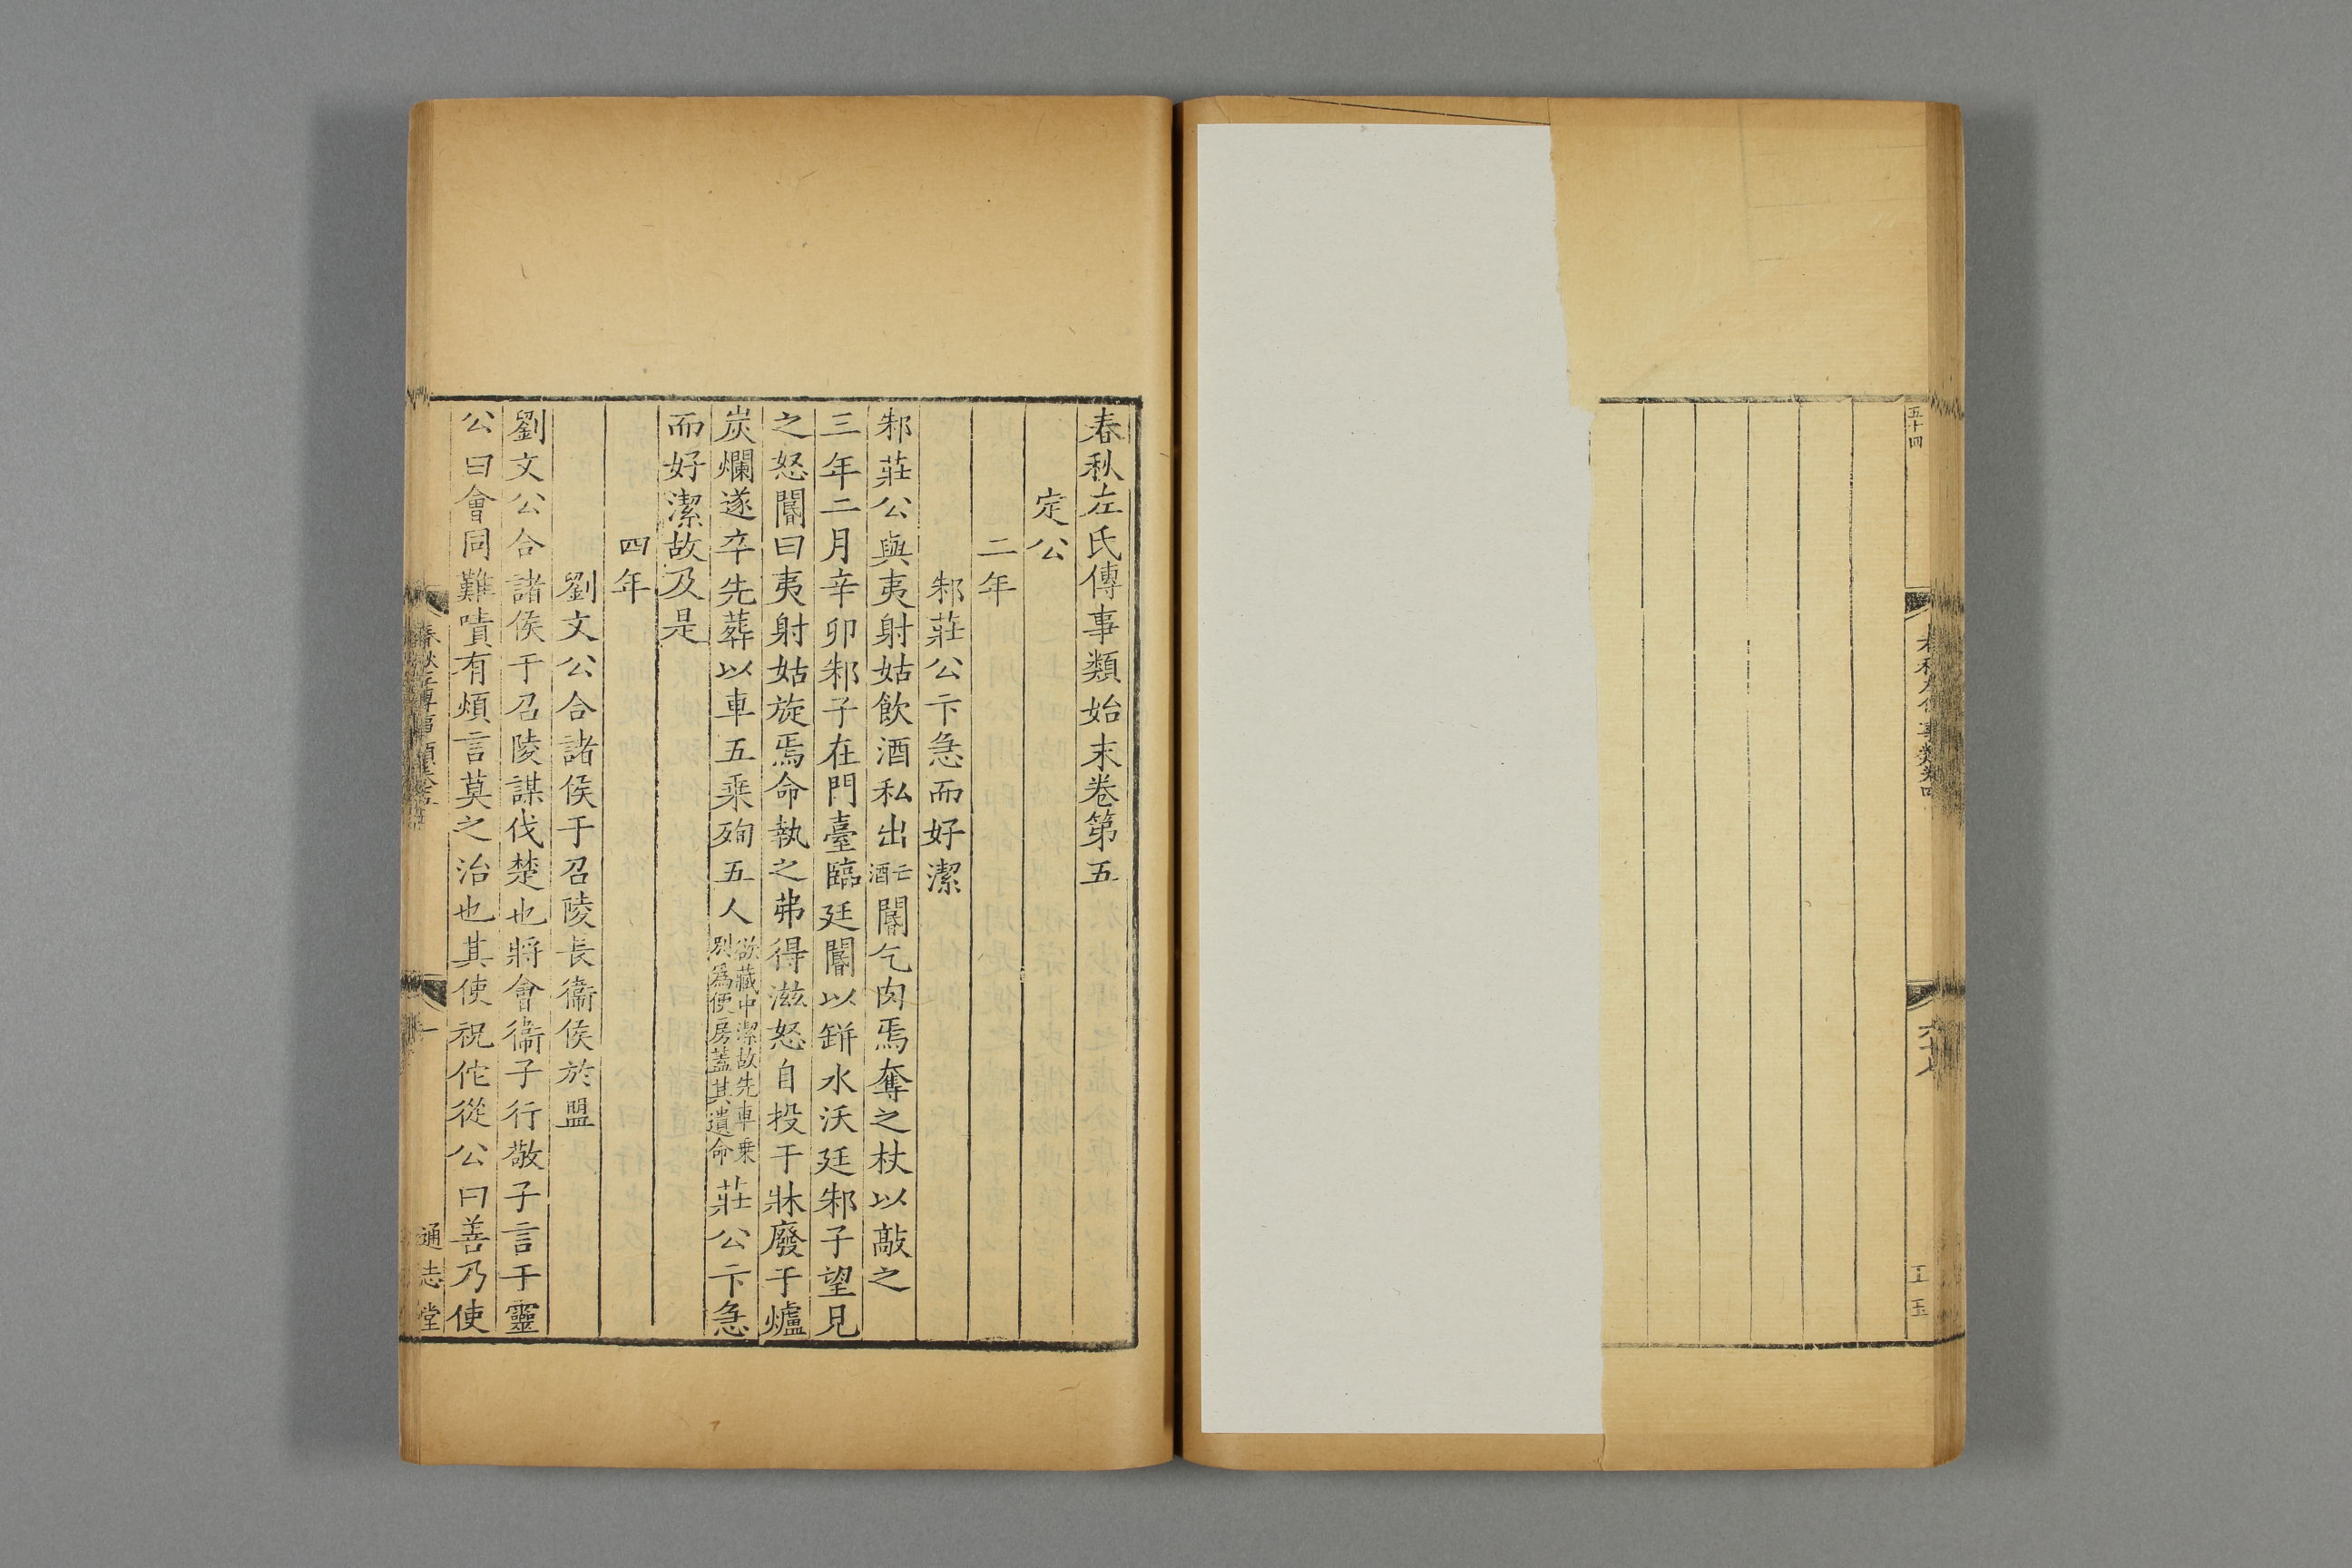 五十四
春秋左傳事類卷四
六十七
春秋左氏傳事類始末卷第五
定公
二年
邾莊公卞急而好潔
邾莊公與夷射姑飲酒私出亡酒閽乞肉焉奪之杖以敲之
三年二月辛卯邾子在門臺臨廷閽以缾水沃廷邾子望見
之怒閽曰夷射姑旋焉命執之弗得滋怒自投于牀廢于爐
炭爛遂卒先葬以車五乗殉五人欲藏中潔故先車乗別爲便房蓋其遺命莊公卞急
而好潔故及是
四年
劉文公合諸侯于召陵長衞侯於盟
劉文公合諸侯于召陵謀伐楚也將會衞子行敬子言于靈
公曰會同難嘖有煩言莫之治也其使祝佗從公曰善乃使
春秋左傳事類卷五
一
通志堂